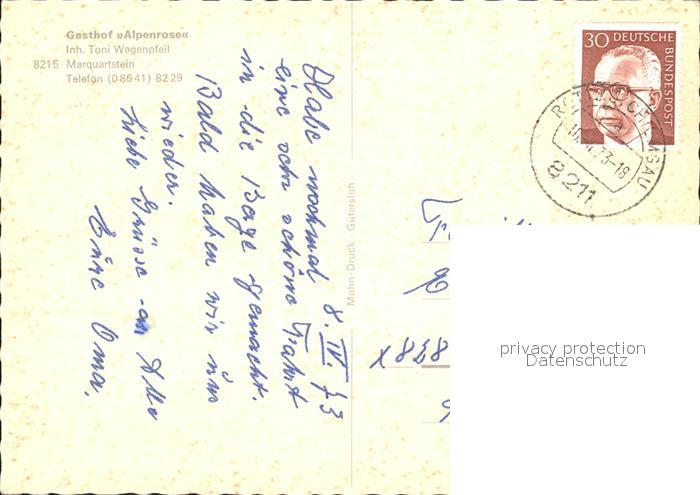 Gasthof »Alpenrose«
Inh. Toni Wagenpfeil
8215 Marquartstein
Telefon (08641) 8229
8. IV. 73
Habe nochmal
eine sehr schöne Fahrt
in die Berge gemacht.
Bald haben wir uns
wieder.
Liebe Grüsse an Alle
Eure Oma.
Mohn-Druck Gütersloh
30 DEUTSCHE
BUNDESPOST
73-18
8211
privacy protection
Datenschutz